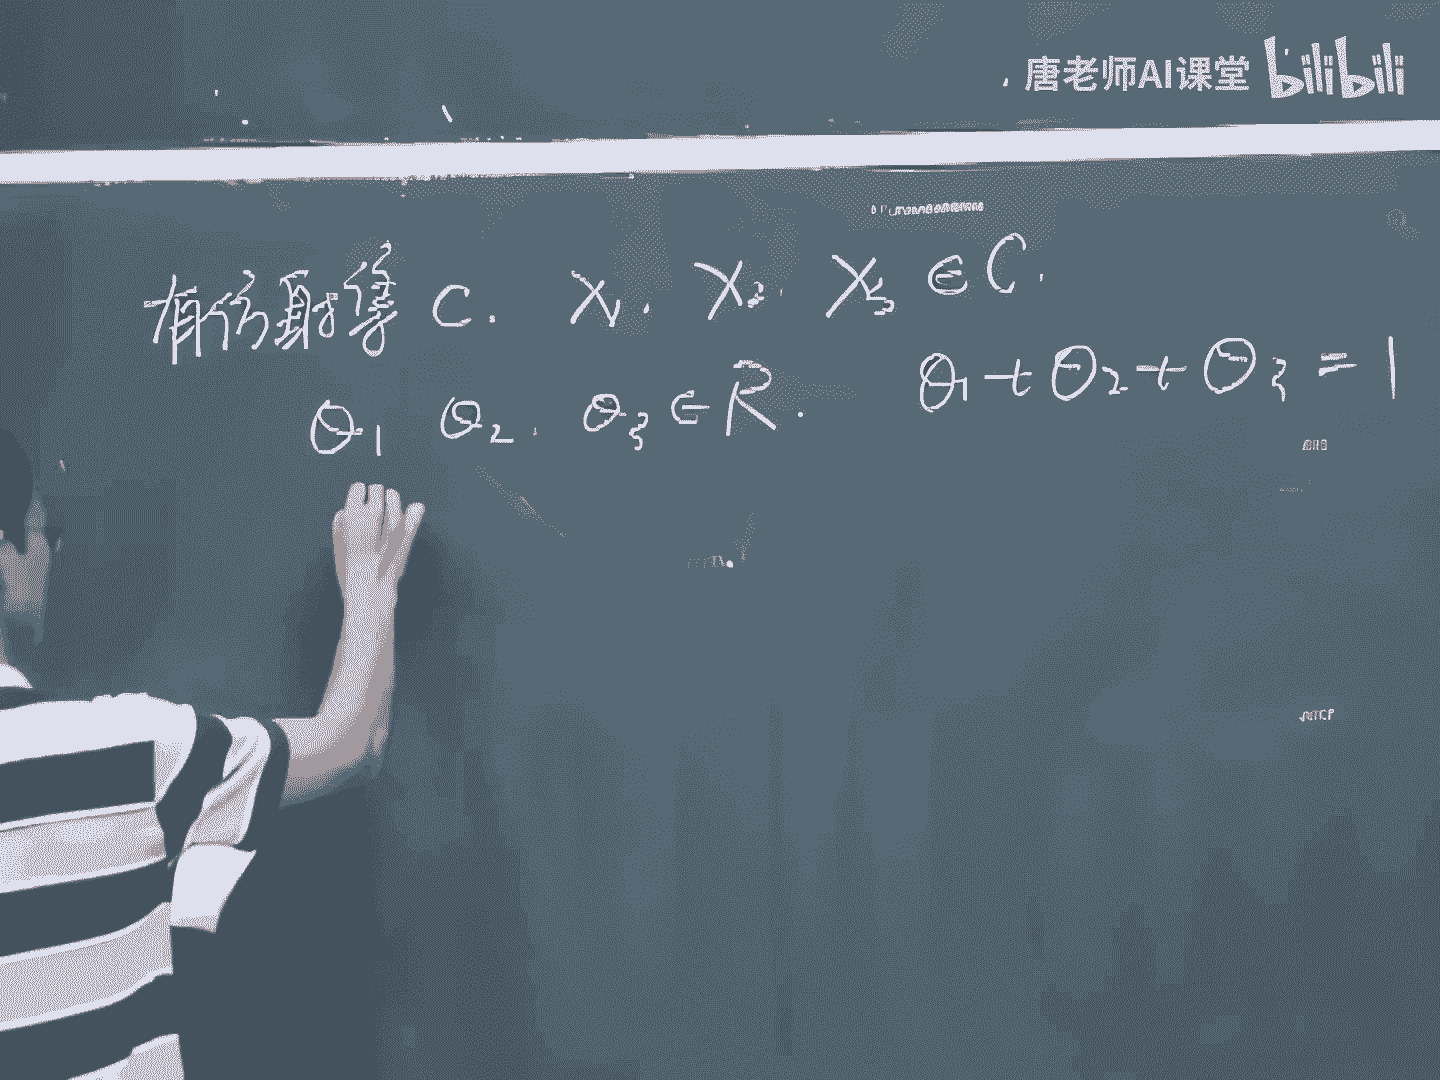 唐老师AI课堂 bilibili
有仿射集 C. X₁. X₂. X₃ ∈ C.
θ₁ θ₂. θ₃ ∈ R. θ₁ + θ₂ + θ₃ = 1